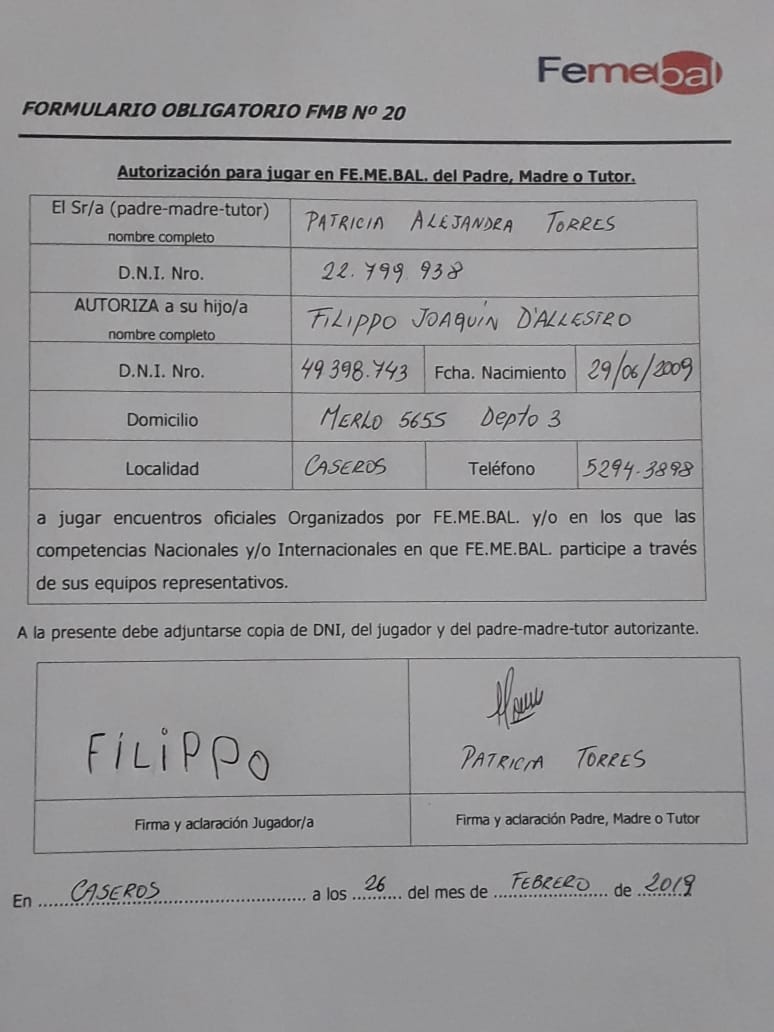 Femebal
FORMULARIO OBLIGATORIO FMB Nº 20
Autorización para jugar en FE.ME.BAL. del Padre, Madre o Tutor.
El Sr/a (padre-madre-tutor)
nombre completo
PATRICIA ALEJANDRA TORRES
D.N.I. Nro.
22.799.938
AUTORIZA a su hijo/a
nombre completo
FILIPPO JOAQUÍN D'ALLESTRO
D.N.I. Nro.
49398.743
Fcha. Nacimiento
29/06/2009
Domicilio
MERLO 5655 Depto 3
Localidad
CASEROS
Teléfono
5294-3898
a jugar encuentros oficiales Organizados por FE.ME.BAL. y/o en los que las
competencias Nacionales y/o Internacionales en que FE.ME.BAL. participe a través
de sus equipos representativos.
A la presente debe adjuntarse copia de DNI, del jugador y del padre-madre-tutor autorizante.
FiLiPPO
PATRICIA TORRES
Firma y aclaración Jugador/a
Firma y aclaración Padre, Madre o Tutor
En CASEROS a los 26 del mes de FEBRERO de 2019